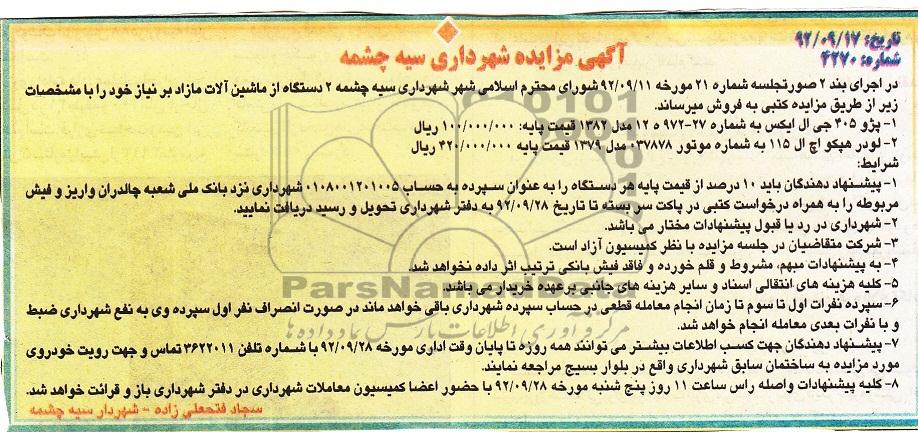 تاریخ: ۹۲/۰۹/۱۷
شماره: ۴۲۷۰
آگهی مزایده شهرداری سیه چشمه
در اجرای بند ۲ صورتجلسه شماره ۲۱ مورخه ۹۲/۰۹/۱۱ شورای محترم اسلامی شهر شهرداری سیه چشمه ۲ دستگاه از ماشین آلات مازاد بر نیاز خود را با مشخصات
زیر از طریق مزایده کتبی به فروش میرساند.
۱- پژو ۴۰۵ جی ال ایکس به شماره ۲۷-۹۷۲ ه ۱۲ مدل ۱۳۸۲ قیمت پایه: ۱۰۰/۰۰۰/۰۰۰ ریال
۲- لودر هپکو اچ ال ۱۱۵ به شماره موتور ۰۳۷۸۷۸ مدل ۱۳۷۹ قیمت پایه ۴۲۰/۰۰۰/۰۰۰ ریال
شرایط:
۱- پیشنهاد دهندگان باید ۱۰ درصد از قیمت پایه هر دستگاه را به عنوان سپرده به حساب ۰۱۰۸۰۰۱۲۰۱۰۰۵ شهرداری نزد بانک ملی شعبه چالدران واریز و فیش
مربوطه را به همراه درخواست کتبی در پاکت سر بسته تا تاریخ ۹۲/۰۹/۲۸ به دفتر شهرداری تحویل و رسید دریافت نمایید.
۲- شهرداری در رد یا قبول پیشنهادات مختار می باشد.
۳- شرکت متقاضیان در جلسه مزایده با نظر کمیسیون آزاد است.
۴- به پیشنهادات مبهم، مشروط و قلم خورده و فاقد فیش بانکی ترتیب اثر داده نخواهد شد.
۵- کلیه هزینه های انتقالی اسناد و سایر هزینه های جانبی برعهده خریدار می باشد.
۶- سپرده نفرات اول تا سوم تا زمان انجام معامله قطعی در حساب سپرده شهرداری باقی خواهد ماند در صورت انصراف نفر اول سپرده وی به نفع شهرداری ضبط
و با نفرات بعدی معامله انجام خواهد شد.
۷- پیشنهاد دهندگان جهت کسب اطلاعات بیشتر می توانند همه روزه تا پایان وقت اداری مورخه ۹۲/۰۹/۲۸ با شماره تلفن ۳۶۲۲۰۱۱ تماس و جهت رویت خودروی
مورد مزایده به ساختمان سابق شهرداری واقع در بلوار بسیج مراجعه نمایند.
۸- کلیه پیشنهادات واصله راس ساعت ۱۱ روز پنج شنبه مورخه ۹۲/۰۹/۲۸ با حضور اعضا کمیسیون معاملات شهرداری در دفتر شهرداری باز و قرائت خواهد شد.
سجاد فتحعلی زاده - شهردار سیه چشمه